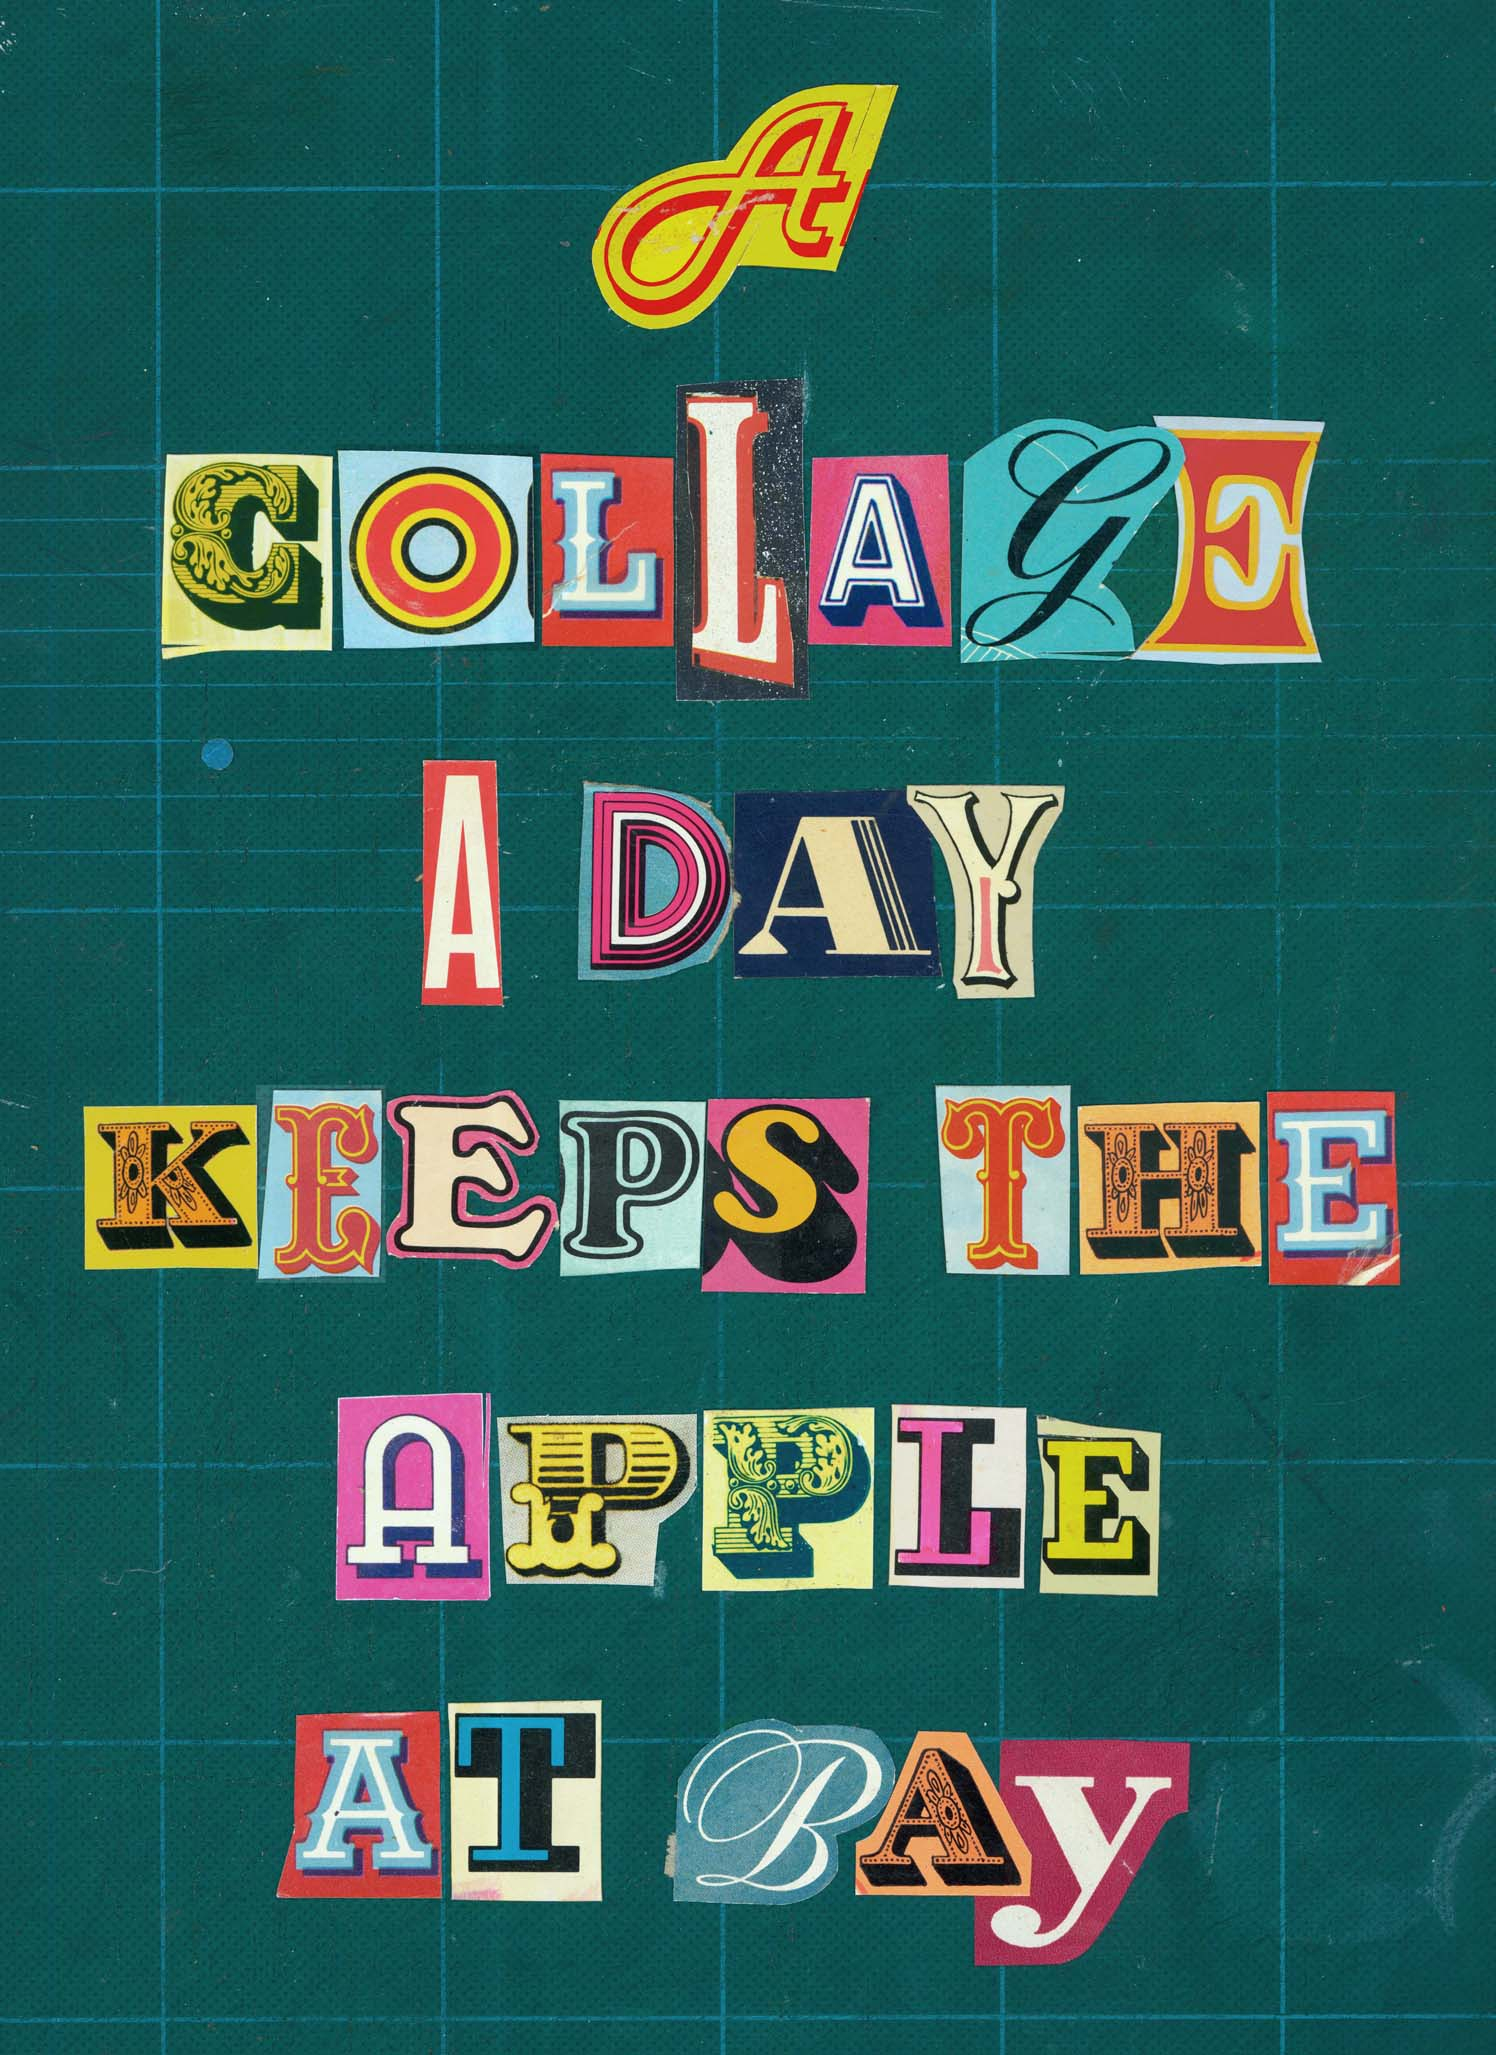 A
COLLAGE
A DAY
KEEPS THE
APPLE
AT BAy